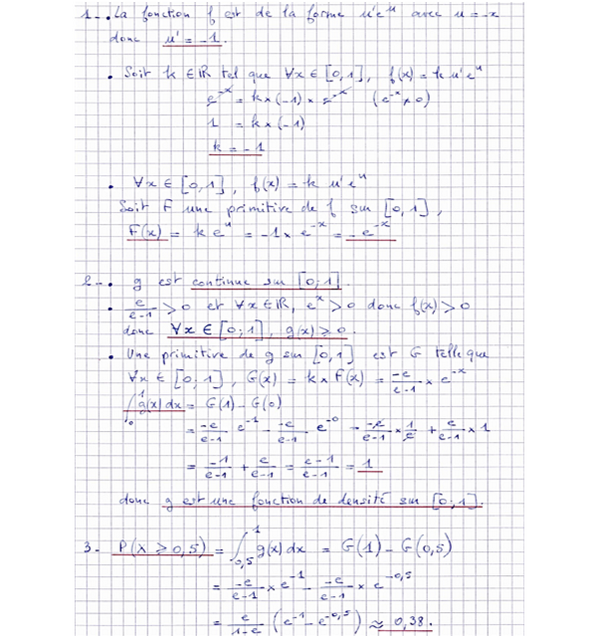 1-. La fonction f est de la forme u'eᵘ avec u = -x
donc u' = -1.
• Soit k ∈ ℝ tel que ∀x ∈ [0,1], f(x) = k u'eᵘ
e⁻ˣ = k × (-1) × e⁻ˣ (e⁻ˣ ≠ 0)
1 = k × (-1)
k = -1
• ∀x ∈ [0,1], f(x) = k u'eᵘ
Soit F une primitive de f sur [0,1],
F(x) = k eᵘ = -1 × e⁻ˣ = - e⁻ˣ
2-. g est continue sur [0;1].
• e/(e-1) > 0 et ∀x ∈ ℝ, eˣ > 0 donc f(x) > 0
donc ∀x ∈ [0;1], g(x) ≥ 0.
• Une primitive de g sur [0,1] est G telle que
∀x ∈ [0;1], G(x) = k × F(x) = -e/(e-1) × e⁻ˣ
∫₀¹ g(x) dx = G(1) - G(0)
= -e/(e-1) e⁻¹ - -e/(e-1) e⁻⁰ = -e/(e-1) × 1/e + e/(e-1) × 1
= -1/(e-1) + e/(e-1) = (e-1)/(e-1) = 1
donc g est une fonction de densité sur [0;1].
3- P(X ≥ 0,5) = ∫₀,₅¹ g(x) dx = G(1) - G(0,5)
= -e/(e-1) × e⁻¹ - -e/(e-1) × e⁻⁰·⁵
= e/(1-e) (e⁻¹ - e⁻⁰·⁵) ≈ 0,38.